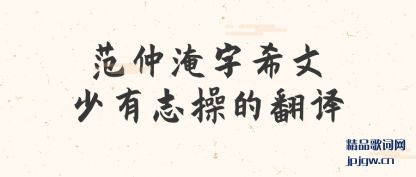 范仲淹字希文
少有志操的翻译
精品歌词网
jpjgw.cn